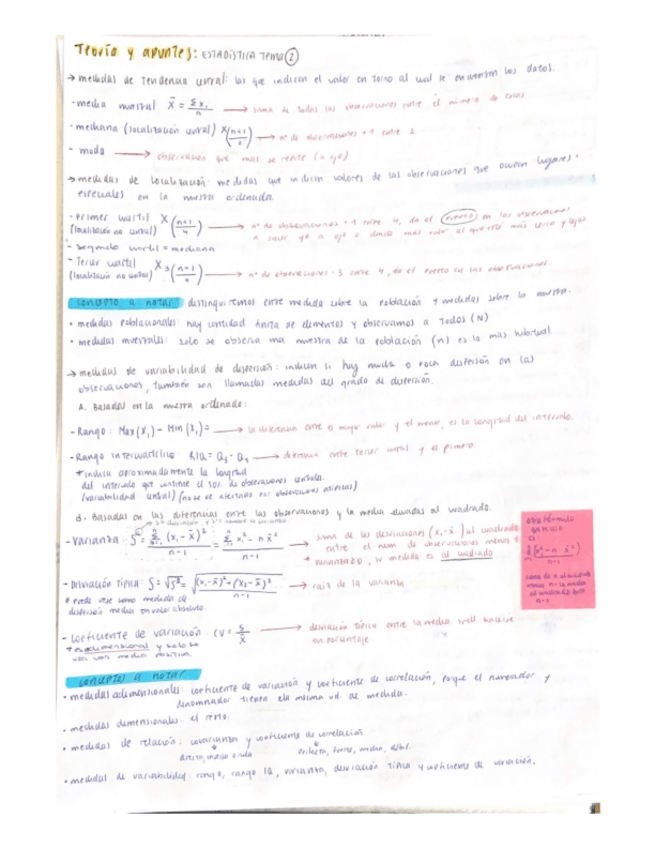 Teoría y apuntes: ESTADÍSTICA Tema 2
→ medidas de tendencia central: las que indican el valor en torno al cual se encuentran los datos.
- media muestral X̄ = Σxᵢ / n → suma de todas las observaciones entre el número de casos
- mediana (localización central) X(n+1 / 2) → nº de observaciones + 1 entre 2
- moda → observación que más se repite (a ojo)
→ medidas de localización: medidas que indican valores de las observaciones que ocupan lugares
especiales en la muestra ordenada.
- Primer cuartil X(n+1 / 4) → nº de observaciones + 1 entre 4, da el puesto en las observaciones
(localización no central)
- Segundo cuartil = mediana
- Tercer cuartil X 3(n+1 / 4) → nº de observaciones · 3 entre 4, da el puesto en las observaciones
(localización no central)
concepto a notar: distinguiremos entre medidas sobre la población y medidas sobre la muestra.
• medidas poblacionales: hay cantidad finita de elementos y observamos a todos (N)
• medidas muestrales: solo se observa una muestra de la población (n) es lo más habitual.
→ medidas de variabilidad de dispersión: indican si hay mucha o poca dispersión en las
observaciones, también son llamadas medidas del grado de dispersión.
A. Basadas en la muestra ordenada:
- Rango: Max(xᵢ) - Min(xᵢ) = → la diferencia entre el mayor valor y el menor, es la longitud del intervalo.
- Rango intercuartílico: RIQ = Q₃ - Q₁ → diferencia entre tercer cuartil y el primero.
* indica aproximadamente la longitud
del intervalo que contiene el 50% de observaciones centrales.
(variabilidad central) (no se ve afectado por observaciones atípicas)
B. Basadas en las diferencias entre las observaciones y la media elevadas al cuadrado.
- Varianza: S² = Σ(xᵢ - x̄)² / n-1 = Σ xᵢ² - n x̄² / n-1 → suma de las desviaciones (xᵢ - x̄) al cuadrado
entre el num de observaciones menos 1
* varianza ≥ 0, su medida es al cuadrado
otra fórmula
- Desviación típica: S = √S² = √(x₁-x̄)²+(x₂-x̄)² / n-1 → raíz de la varianza
* puede verse como medida de
dispersión media en valor absoluto
- Coeficiente de variación: CV = S / X̄ → desviación típica entre la media. suele hacerse
en porcentaje
* adimensional y solo se
usa con media positiva.
conceptos a notar
• medidas adimensionales: coeficiente de variación y coeficiente de correlación, porque el numerador y
denominador tienen la misma ud. de medida.
• medidas dimensionales: el resto.
• medidas de relación: covarianza y coeficiente de correlación
directa, inversa o nula perfecta, fuerte, media, débil.
• medidas de variabilidad: rango, rango IQ, varianza, desviación típica y coeficiente de variación.